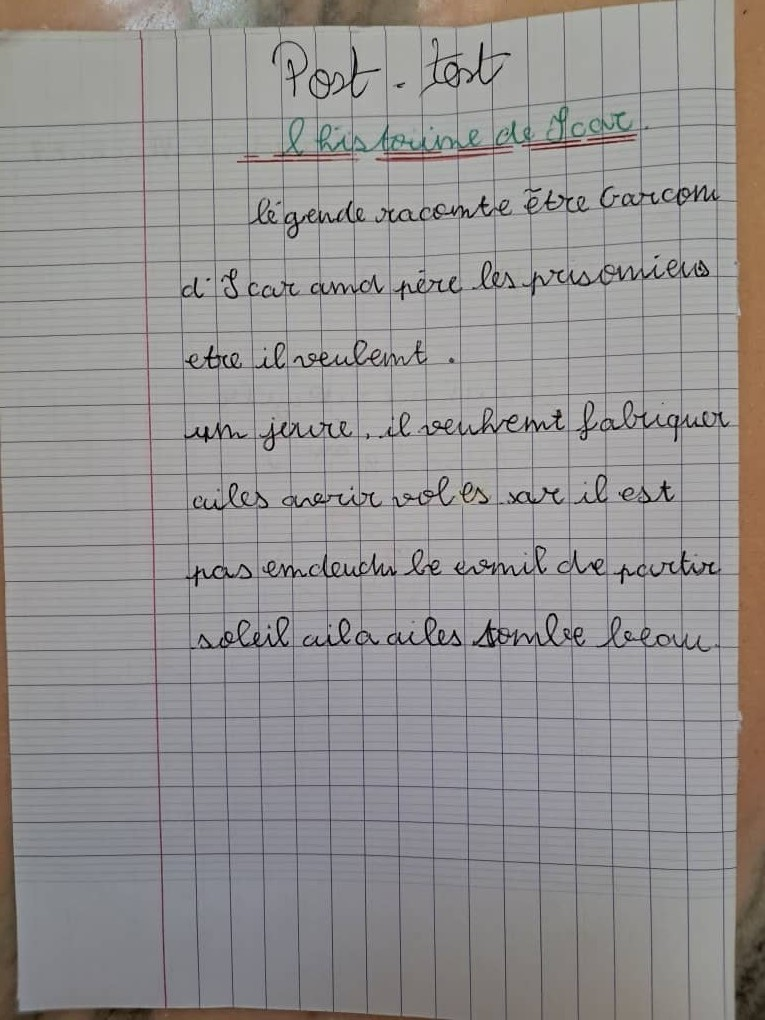 Post-test
l histoirime de Icar.
légende racomte être Garcom
d'Icar amd père les prisomiens
etre il veulemt.
um jeure, il veulvemt fabriquer
ailes averir voles sar il est
pas emdeuch le
de partir
soleil aila ailes tombe leeau.